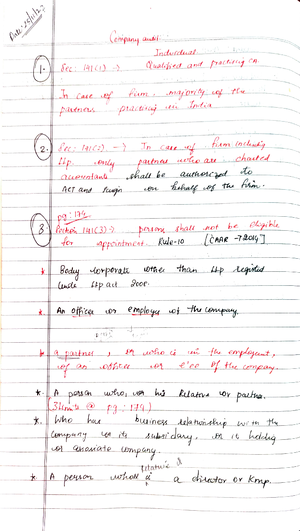 Company audit.
Individual
1. Sec: 141(1) -> Qualified and practising CA
In case of firm, majority of the
partners practising in India
2. Sec: 141(2) -> In case of firm including
Llp. only partner who are charted
accountants shall be authorized to
Act and sign on behalf of the firm.
pg: 174
3 Section 141(3) -> person shall not be eligible
for appointment. Rule-10 [CAAR - 2014]
* Body corporate other than Llp registed
under Llp act 2008.
* An officer or employee of the company.
* a partner, or who is in the employment,
of an officer or e'ee of the company.
* A person who, or his Relative or partner.
* Who has business relationship with the
company or its subsidary, or it holding
or associate company.
relative
* A person whose a director or Kmp.